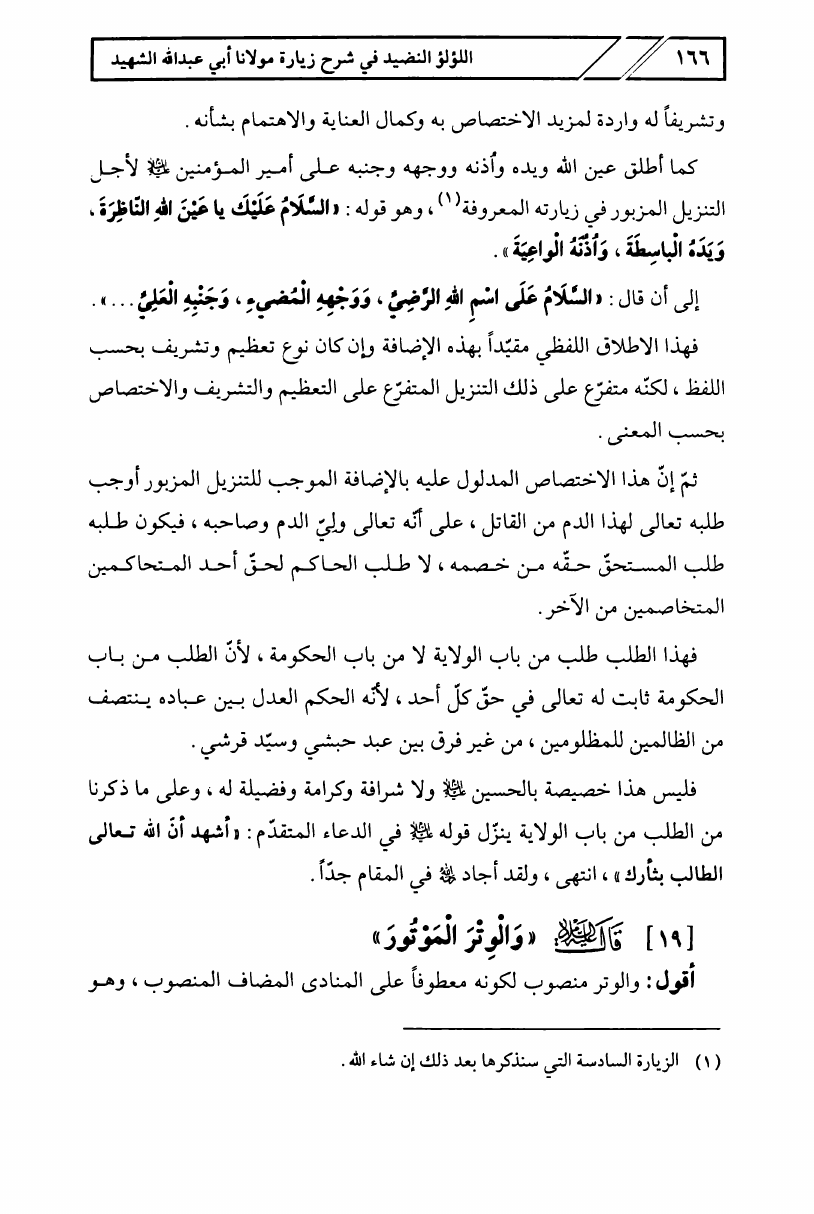 ١٦٦ اللؤلؤ النضيد في شرح زيارة مولانا أبي عبدالله الشهيد
وتشريفاً له واردة لمزيد الاختصاص به وكمال العناية والاهتمام بشأنه .
كما أطلق عين الله ويده وأذنه ووجهه وجنبه عـلى أمـير المـؤمنين ﷷ لأجـل
التنزيل المزبور في زيارته المعروفة(١) ، وهو قوله : «السَّلَامُ عَلَيْكَ يا عَيْنَ اللهِ النّاظِرَةَ ،
وَيَدَهُ الْباسِطَةَ ، وَأُذُنَهُ الْواعِيَةَ» .
إلى أن قال : «السَّلَامُ عَلَى اسْمِ اللهِ الرَّضِيِّ ، وَوَجْهِهِ الْمُضيءِ ، وَجَنْبِهِ الْعَلِيِّ ...» .
فهذا الاطلاق اللفظي مقيّداً بهذه الإضافة وإن كان نوع تعظيم وتشريف بحسب
اللفظ ، لكنّه متفرّع على ذلك التنزيل المتفرّع على التعظيم والتشريف والاختصاص
بحسب المعنى .
ثمّ إنّ هذا الاختصاص المدلول عليه بالإضافة الموجب للتنزيل المزبور أوجب
طلبه تعالى لهذا الدم من القاتل ، على أنّه تعالى وليّ الدم وصاحبه ، فيكون طـلبه
طلب المسـتحقّ حـقّه مـن خـصمه ، لا طـلب الحـاكـم لحـقّ أحـد المـتحاكـمين
المتخاصمين من الآخر .
فهذا الطلب طلب من باب الولاية لا من باب الحكومة ، لأنّ الطلب مـن بـاب
الحكومة ثابت له تعالى في حقّ كلّ أحد ، لأنّه الحكم العدل بـين عـباده يـنتصف
من الظالمين للمظلومين ، من غير فرق بين عبد حبشي وسيّد قرشي .
فليس هذا خصيصة بالحسين ﷷ ولا شرافة وكرامة وفضيلة له ، وعلى ما ذكرنا
من الطلب من باب الولاية ينزّل قوله ﷷ في الدعاء المتقدّم : «أشهد أنّ الله تـعالى
الطالب بثأرك» ، انتهى ، ولقد أجاد في المقام جدّاً .
[١٩] قَالَ «وَالْوِتْرَ الْمَوْتُورَ»
أقول : والوتر منصوب لكونه معطوفاً على المنادى المضاف المنصوب ، وهـو
(١) الزيارة السادسة التي سنذكرها بعد ذلك إن شاء الله .